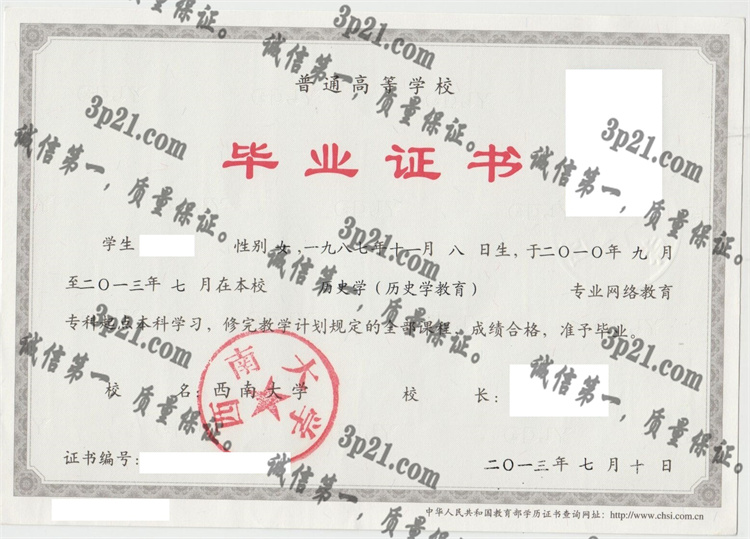 普通高等学校
毕业证书
学生 性别 女，一九八七年十一月 八 日生，于二〇一〇年 九 月
至二〇一三年 七 月在本校 历史学（历史学教育） 专业网络教育
专科起点本科学习，修完教学计划规定的全部课程，成绩合格，准予毕业。
校 名：西南大学 校 长：
西南大学
证书编号： 二〇一三年 七 月 十 日
中华人民共和国教育部学历证书查询网址：http://www.chsi.com.cn
3p21.com
诚信第一，质量保证。
3p21.com
诚信第一，质量保证。
3p21.com
诚信第一，质量保证。
3p21.com
诚信第一，质量保证。
3p21.com
诚信第一，质量保证。
3p21.com
诚信第一，质量保证。
3p21.com
诚信第一，质量保证。
诚信第一，质量保证。